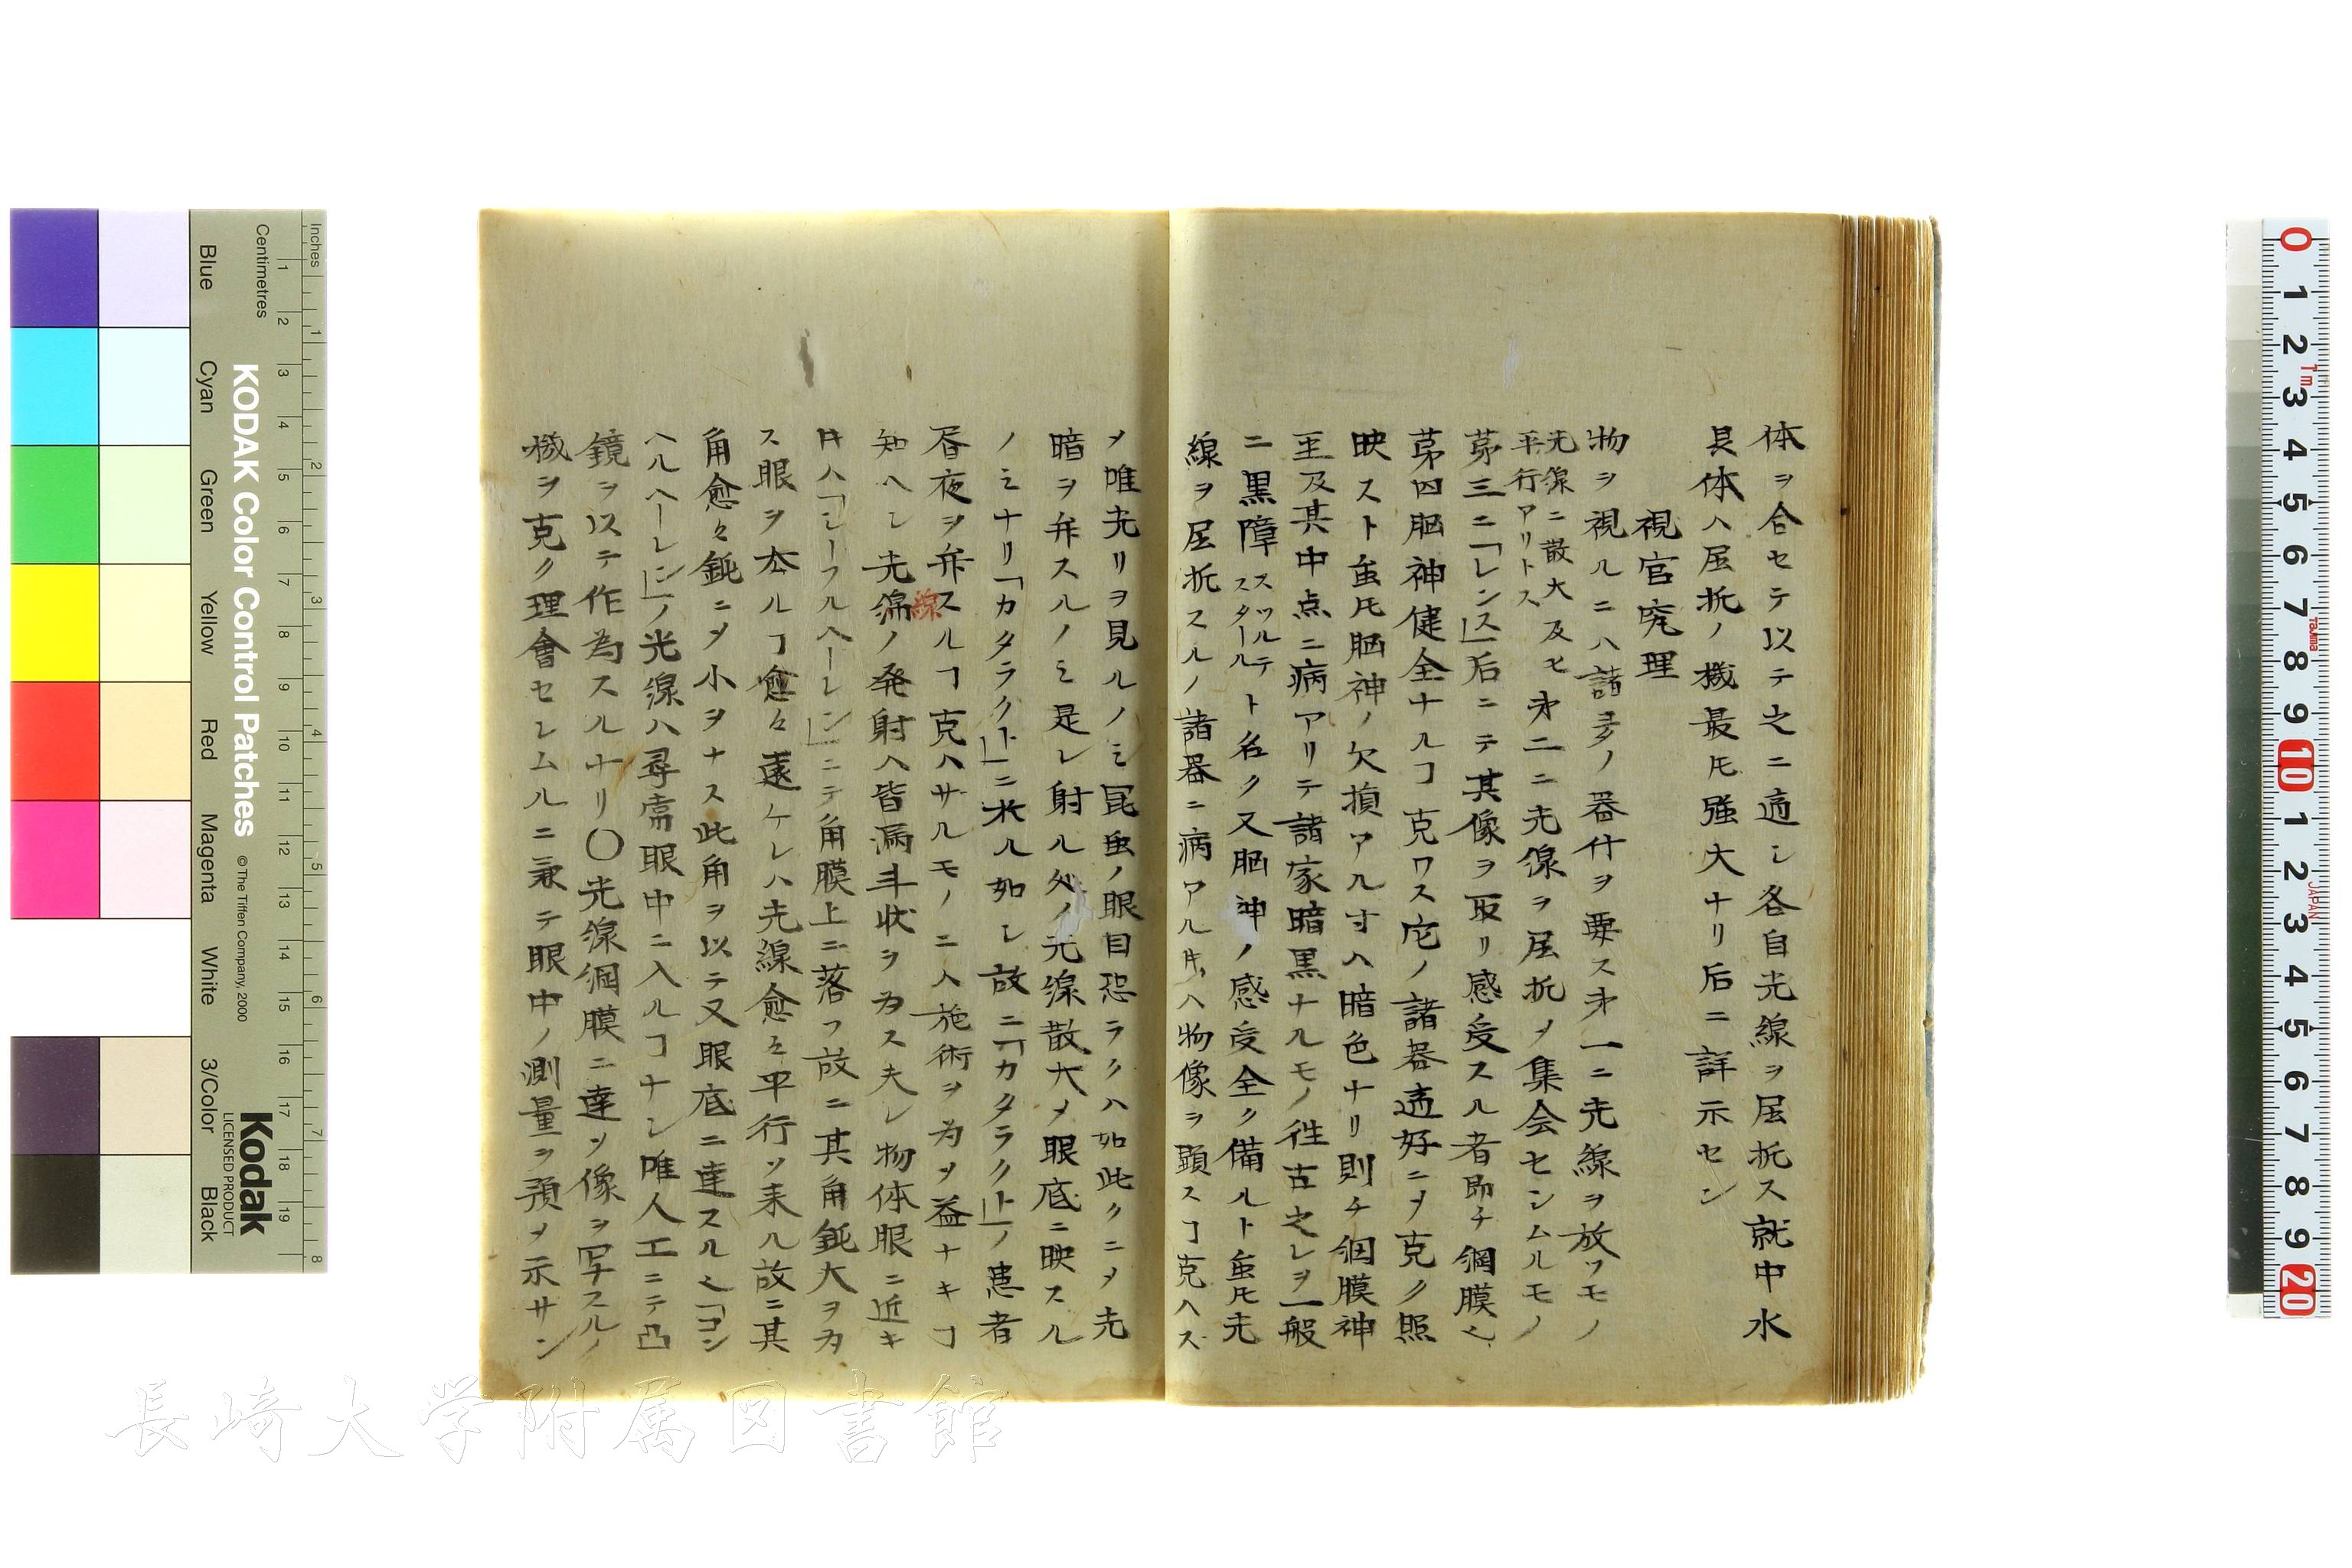 体ヲ合セテ以テ之ニ適シ各自光線ヲ屈折ス就中水
晶体ハ屈折ノ機最モ強大ナリ后ニ詳示セン
視官究理
物ヲ視ルニハ諸多ノ器什ヲ要ス才一ニ光線ヲ放ツモノ
光線ニ散大及ヒ
平行アリトス
才二ニ光線ヲ屈折メ集会センムルモノ
第三ニ「レンス」后ニテ其像ヲ取リ感受スル者即チ網膜也
第四脳神健全ナルヿ克ワス它ノ諸器適好ニメ克ク照
映スト虽𪜈脳神ノ欠損アル寸ハ暗色ナリ則チ網膜神
至及其中点ニ病アリテ諸家暗黒ナルモノ徃古之レヲ一般
ニ黒障
スツルテ
スタール
ト名ク又脳神ノ感受全ク備ルト虽𪜈光
線ヲ屈折スルノ諸器ニ病アル𪜈ハ物像ヲ顕スヿ克ハズ
メ唯光リヲ見ルノミ昆虫ノ眼目恐ラクハ如此クニメ光
暗ヲ弁スルノミ是レ射ル処ノ光線散大メ眼底ニ映スル
ノミナリ「カタラクト」ニ於ル如シ故ニ「カタラクト」ノ患者
昼夜ヲ弁スルヿ克ハサルモノニハ施術ヲ為メ益ナキヿ
知ヘシ光線ノ発射ハ皆漏斗状ヲ為ス夫レ物体眼ニ近キ
線
𪜈ハ「シーフルヘーレン」ニテ角膜上ニ落フ故ニ其角鈍大ヲ为
ス眼ヲ去ルヿ愈々遠ケレハ光線愈々平行ソ来ル故ニ其
角愈々鈍ニメ小ヲナス此角ヲ以テ又眼底ニ達スル也「コン
ヘルヘーレン」ノ光線ハ尋常眼中ニ入ルヿナシ唯人工ニテ凸
鏡ヲ以テ作為スルナリ〇光線網膜ニ達ソ像ヲ写スルノ
機ヲ克ク理會セシムルニ兼テ眼中ノ測量ヲ預メ示サン
Inches
Centimetres
1 2 3 4 5 6 7 8 9 10 11 12 13 14 15 16 17 18 19
1 2 3 4 5 6 7 8
Blue Cyan Green Yellow Red Magenta White 3/Color Black
KODAK Color Control Patches
© The Tiffen Company, 2000
Kodak
LICENSED PRODUCT
0 1 2 3 4 5 6 7 8 9 10 1 2 3 4 5 6 7 8 9 20
Tajima
JAPAN
長崎大学附属図書館